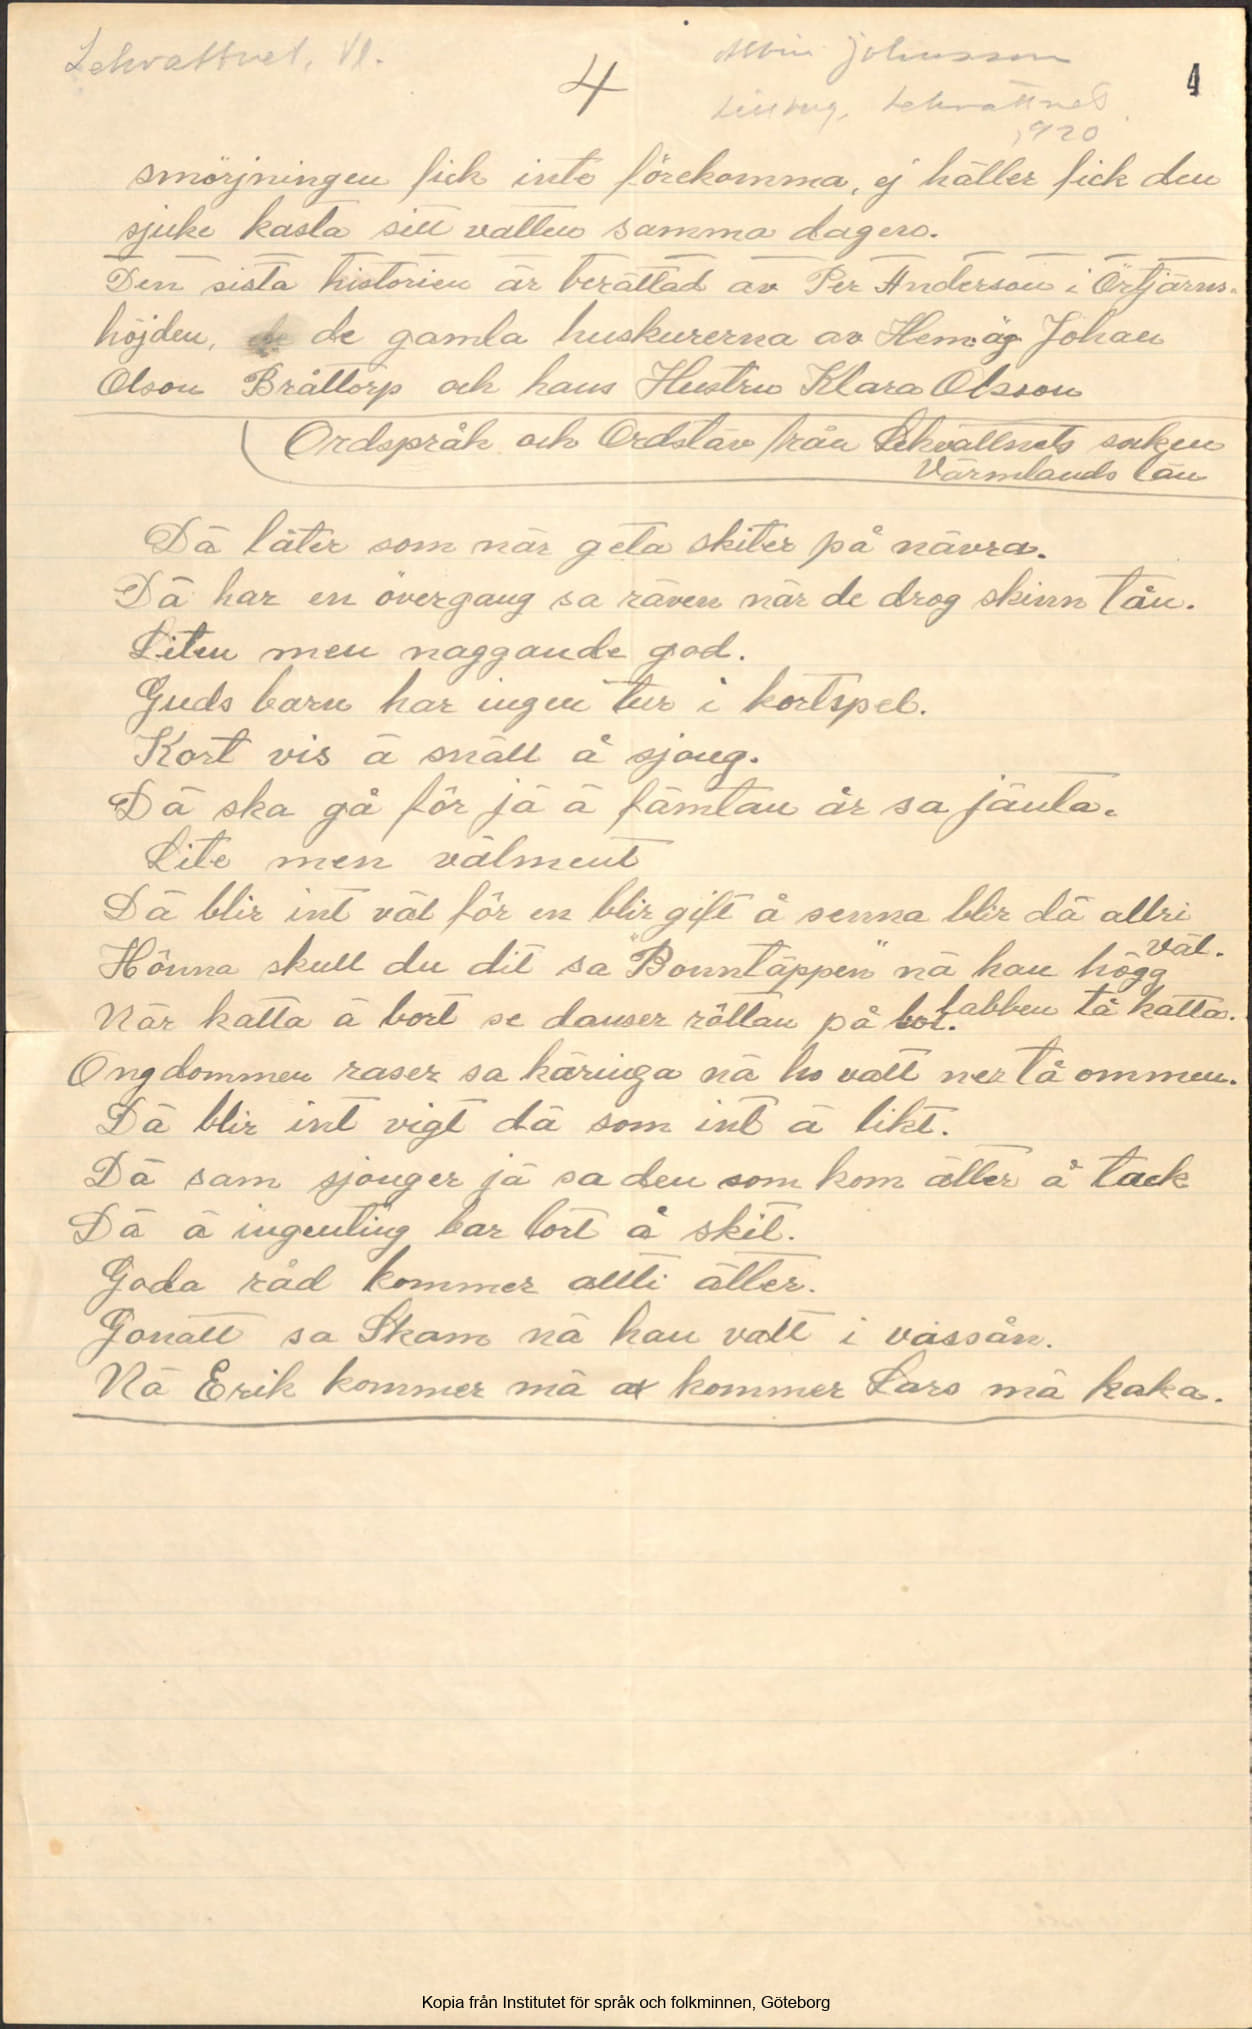 Lekvattnet, Vl.
4
Albin Johnsson
Lekvattnet
1920
4
smörjningen fick inte förekomma, ej häller fick den
sjuke kasta sitt vatten samma dagero.
Den sista historien är berättad av Per Anderson i Örtjärns-
höjden, de gamla huskurerna av Hem.äg Johan
Olson Bråttorp och hans Hustru Klara Olsson
Ordspråk och Ordstäv från Lekvattnets socken
Värmlands län
Dä låter som när geta skiter på nävra.
Dä har en övergang sa räven när de drog skinn tån.
Liten men naggande god.
Guds barn har ingen tur i kortspel.
Kort vis ä snäll å sjong.
Dä ska gå för jä ä fämtan år sa jänta.
Lite men välment
Dä blir int väl för en blir gift å senna blir dä allri
väl.
Hönna skull du dit sa "Bonntäppen" nä han högg
labben tå katta.
När katta ä bort se danser rôttan på bol.
Ongdommen raser sa käringa nä ho vatt ner tå ommen.
Dä blir int vigt dä som int ä likt.
Dä sam sjonger jä sa den som kom ätter å tack
Dä ä ingenting bar bort å skit.
Goda råd kommer allti ätter.
Gonatt sa Skam nä han vatt i vassån.
Nä Erik kommer mä ax kommer Lars mä kaka.
Kopia från Institutet för språk och folkminnen, Göteborg